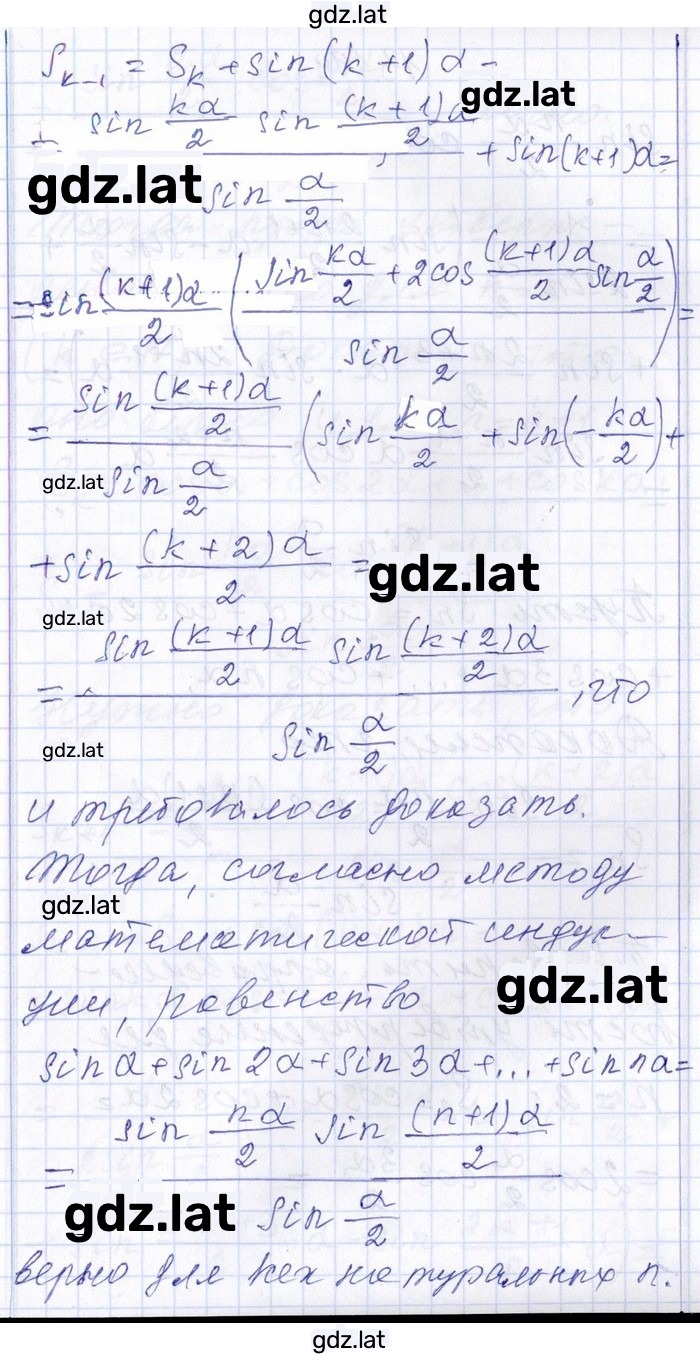 gdz.lat
S_{k-1} = S_k + sin(k+1)α -
gdz.lat
= \frac{sin \frac{kα}{2} sin \frac{(k+1)α}{2}}{sin \frac{α}{2}} + sin(k+1)α =
gdz.lat
= sin \frac{(k+1)α}{2} ( \frac{sin \frac{kα}{2} + 2cos \frac{(k+1)α}{2} sin \frac{α}{2}}{sin \frac{α}{2}} ) =
= \frac{sin \frac{(k+1)α}{2}}{sin \frac{α}{2}} · ( sin \frac{kα}{2} + sin(-\frac{kα}{2}) +
gdz.lat
+ sin \frac{(k+2)α}{2} =
gdz.lat
gdz.lat
= \frac{sin \frac{(k+1)α}{2} sin \frac{(k+2)α}{2}}{sin \frac{α}{2}}, что
gdz.lat
и требовалось доказать.
Тогда, согласно методу
gdz.lat
математической индук-
ции, равенство
gdz.lat
sin α + sin 2α + sin 3α + ... + sin nα =
= \frac{sin \frac{nα}{2} sin \frac{(n+1)α}{2}}{sin \frac{α}{2}}
gdz.lat
верно для всех натуральных n.
gdz.lat